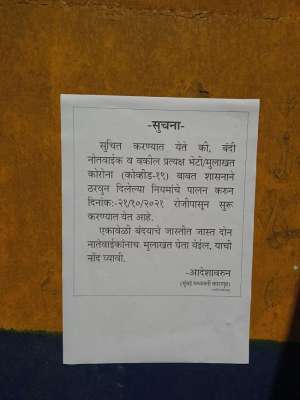 -सुचना-
सुचित करण्यात येते की, बंदी
नातेवाईक व वकील प्रत्यक्ष भेटी/मुलाखत
कोरोना (कोव्हीड-१९) बाबत शासनाने
ठरवुन दिलेल्या नियमांचे पालन करुन
दिनांक:-२१/१०/२०२१ रोजीपासून सुरू
करण्यात येत आहे.
एकावेळी बंदयाचे जास्तीत जास्त दोन
नातेवाईकांनाच मुलाखत घेता येईल, याची
नोंद घ्यावी.
-आदेशावरुन
(मुंबई मध्यवर्ती कारागृह)